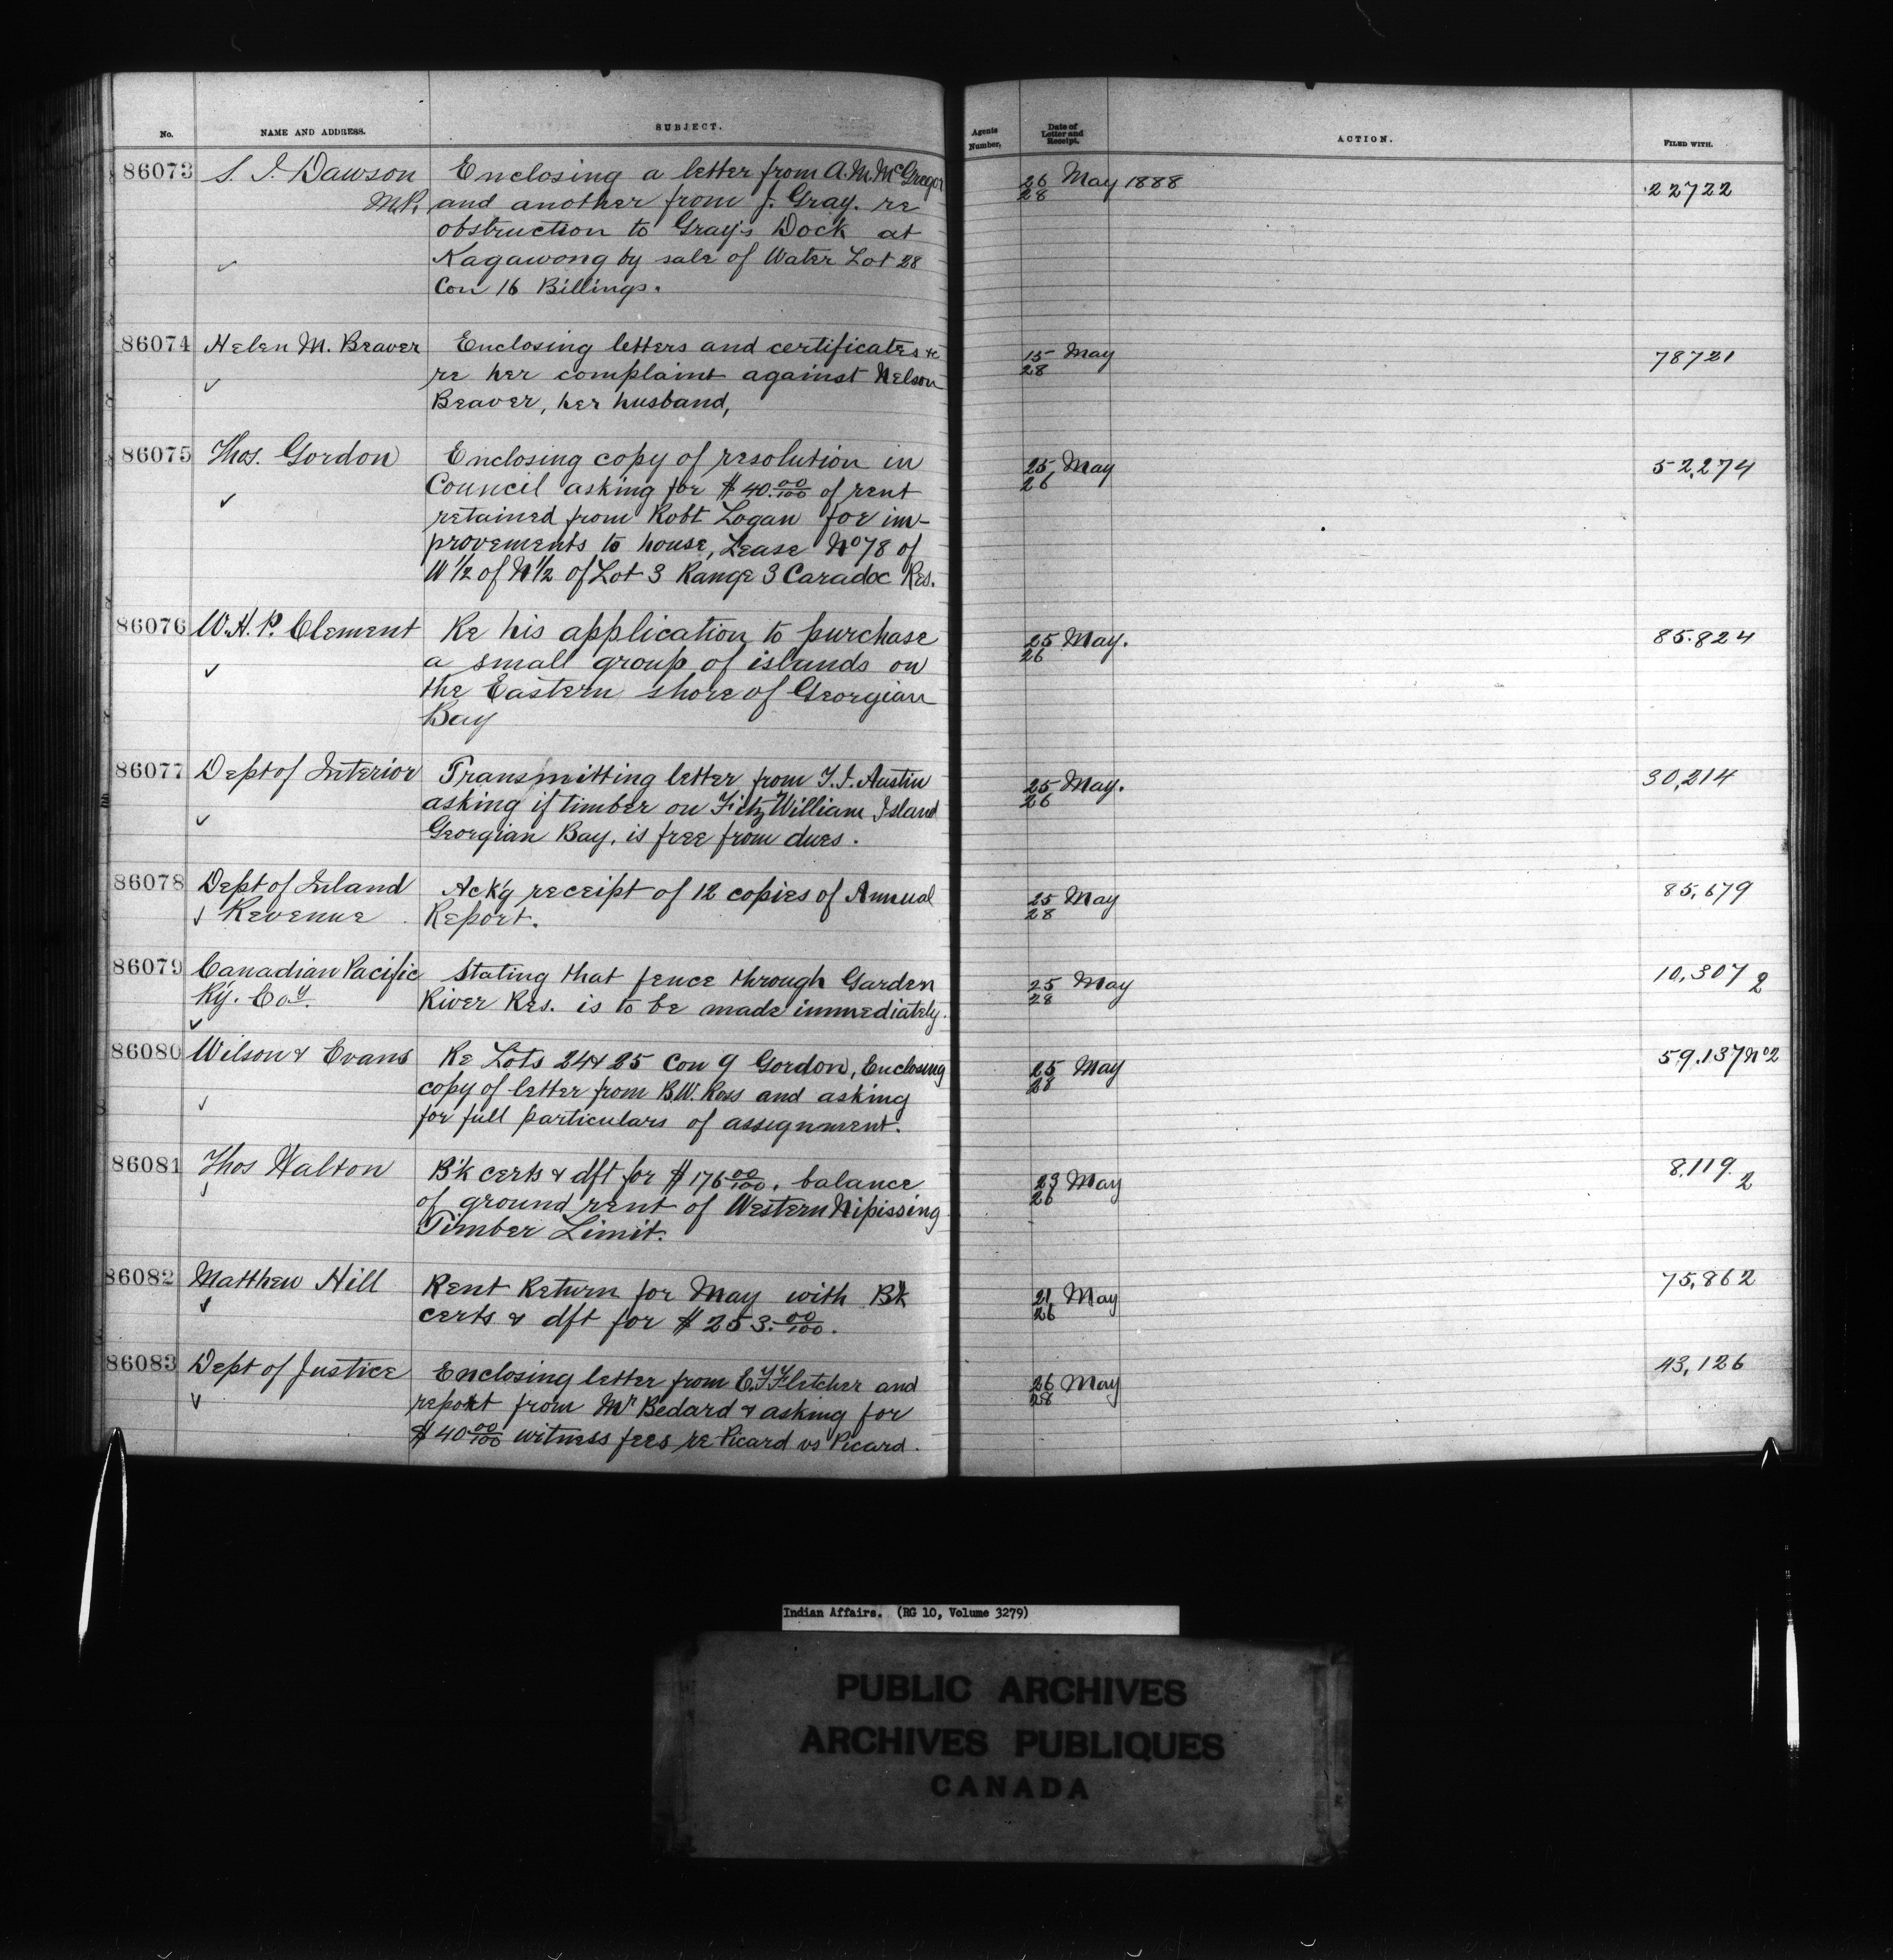 No. NAME AND ADDRESS. SUBJECT. Agents Number. Date of Letter and Receipt. ACTION. FILED WITH.
86073 S. J. Dawson Enclosing a letter from A. M. McGregor 26 May 1888 22722
M.P. and another from J. Gray. re 28
obstruction to Gray's Dock at
Kagawong by sale of Water Lot 28
Con 16 Billings.
86074 Helen M. Beaver Enclosing letters and certificates &c 15 May 78721
re her complaint against Nelson 28
Beaver, her husband,
86075 Thos. Gordon Enclosing copy of resolution in 25 May 52,274
Council asking for $40.00/100 of rent 26
retained from Robt Logan for im-
provements to house, Lease No 78 of
W 1/2 of N 1/2 of Lot 3 Range 3 Caradoc Res.
86076 W. H. P. Clement Re his application to purchase 25 May. 85.824
a small group of islands on 26
the Eastern shore of Georgian
Bay
86077 Dept of Interior Transmitting letter from T. J. Austin 25 May. 30,214
asking if timber on Fitz William Island 26
Georgian Bay, is free from dues.
86078 Dept of Inland Ack'g receipt of 12 copies of Annual 25 May 85,679
Revenue Report. 28
86079 Canadian Pacific Stating that fence through Garden 25 May 10,307 2
Ry. Coy. River Res. is to be made immediately. 28
86080 Wilson & Evans Re Lots 24 & 25 Con 9 Gordon, Enclosing 25 May 59.137 No 2
copy of letter from B. W. Ross and asking 28
for full particulars of assignment.
86081 Thos Walton B'k certs & dft for $176 00/100, balance 23 May 8,119 2
of ground rent of Western Nipissing 26
Timber Limit.
86082 Matthew Hill Rent Return for May with Bk 21 May 75,862
certs & dft for $253.00/100. 26
86083 Dept of Justice Enclosing letter from E. F. Fletcher and 26 May 43,126
report from Mr Bedard & asking for 28
$40 00/100 witness fees re Picard vs Picard.
Indian Affairs. (RG 10, Volume 3279)
PUBLIC ARCHIVES
ARCHIVES PUBLIQUES
CANADA